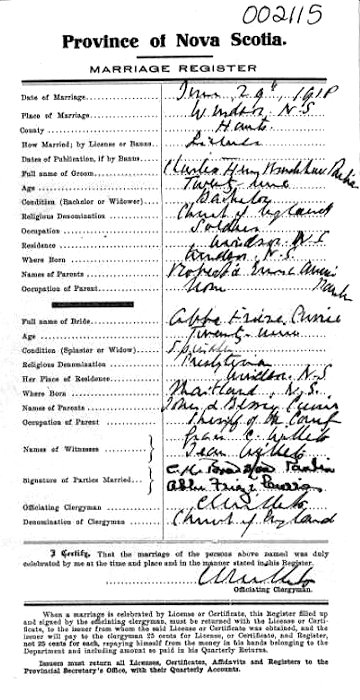 002115
Province of Nova Scotia.
MARRIAGE REGISTER
Date of Marriage 29th, 1918
Place of Marriage Windsor, N.S
County Hants
How Married; by License or Banns License
Dates of Publication, if by Banns
Full name of Groom Charles Henry
Age Twenty nine
Condition (Bachelor or Widower) Bachelor
Religious Denomination Church of England
Occupation Soldier
Residence Windsor N.S
Where Born Windsor, N.S.
Names of Parents Robert &
Occupation of Parent None
Full name of Bride Abbie Frieze
Age Twenty-nine
Condition (Spinster or Widow) Spinster
Religious Denomination Presbyterian
Her Place of Residence Windsor N.S
Where Born Maitland, N.S.
Names of Parents John &
Occupation of Parent of the Court
Names of Witnesses
Signature of Parties Married
Officiating Clergyman
Denomination of Clergyman Church of England
I Certify, That the marriage of the persons above named was duly
celebrated by me at the time and place and in the manner stated in this Register.
Officiating Clergyman.
When a marriage is celebrated by License or Certificate, this Register filled up
and signed by the officiating clergyman, must be returned with the License or Certi-
ficate, to the issuer from whom the said License or Certificate was obtained, and the
issuer will pay to the clergyman 25 cents for License, or Certificate, and Register,
not 25 cents for each, repaying himself from the money in his hands belonging to the
Department and including amount so paid in his Quarterly Returns.
Issuers must return all Licenses, Certificates, Affidavits and Registers to the
Provincial Secretary's Office, with their Quarterly Accounts.